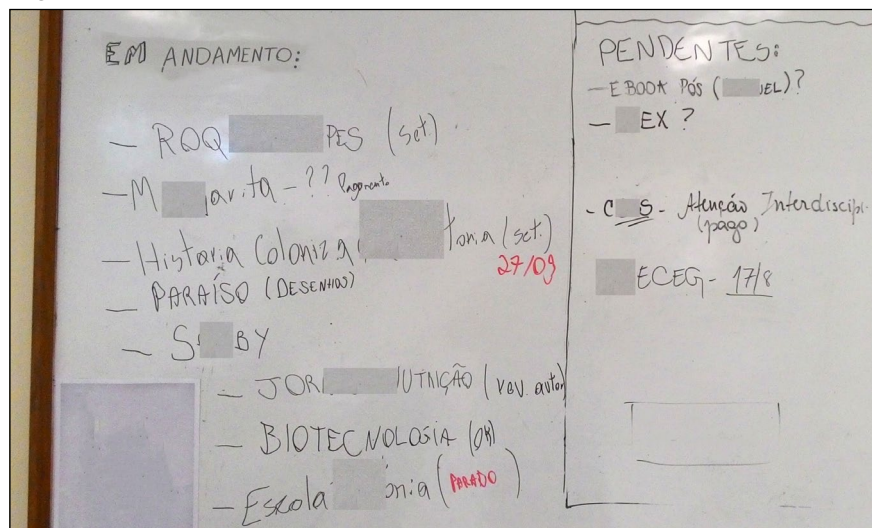 EM ANDAMENTO:
— ROQ PES (set.)
— M garita - ?? Pagamento
— Historia Coloniza tonia (set.)
27/09
— PARAÍSO (DESENHOS)
— S BY
— JOR UTRIÇÃO (rev. autor)
— BIOTECNOLOGIA (OK)
— Escola ônia (PARADO)
PENDENTES:
— EBOOK Pós ( UEL)?
— EX ?
- C S - Atenção Interdiscipl-
(pago)
ECEG - 17/8